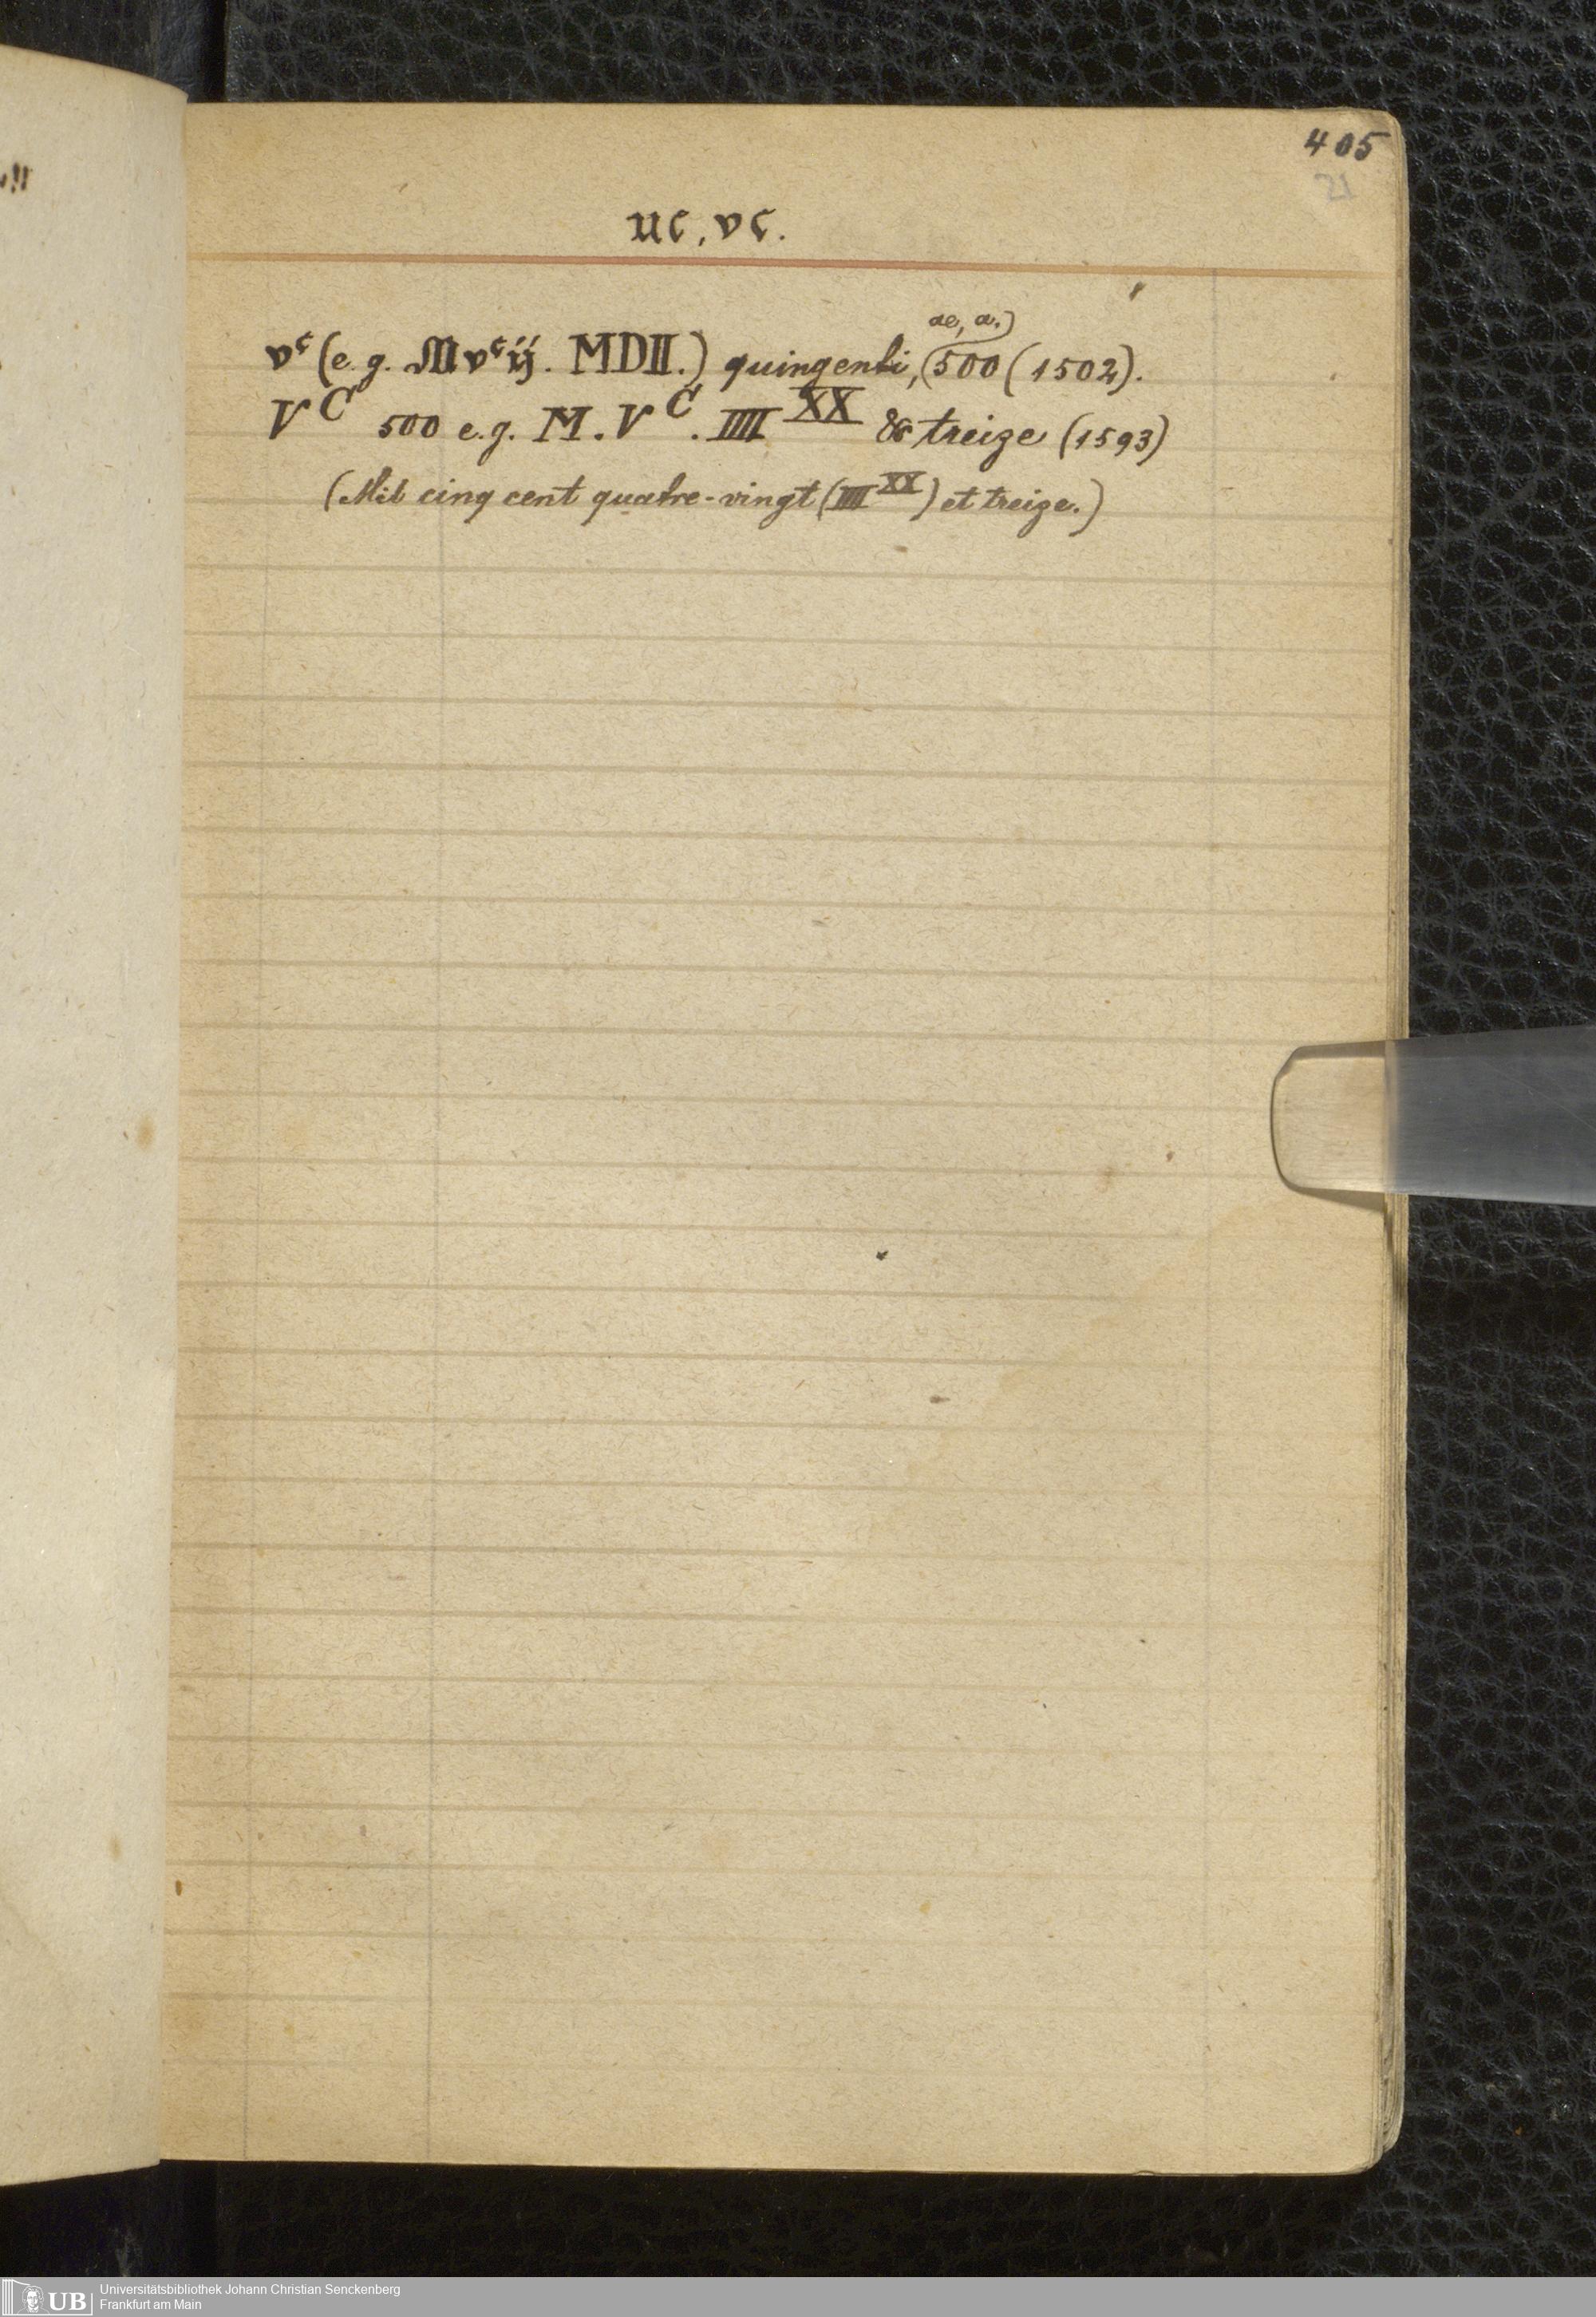 405
21
uc, vc.
ae, a.)
vᶜ (e. g. Mvᶜij. MDII.) quingenti, (500 (1502).
V^C 500 e. g. M. V^C. IIII^XX & treize (1593)
(Mil cinq cent quatre-vingt (IIII^XX) et treize.)
UB
Universitätsbibliothek Johann Christian Senckenberg
Frankfurt am Main